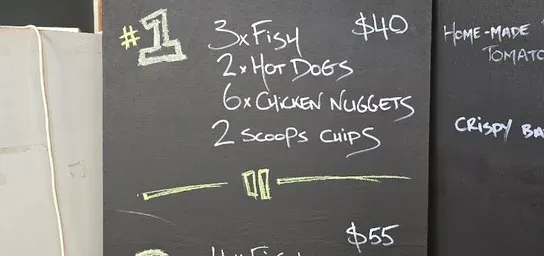 #1
3x Fish $40
2x Hot Dogs
6x Chicken Nuggets
2 Scoops Chips
$55
Home-Made
Crispy